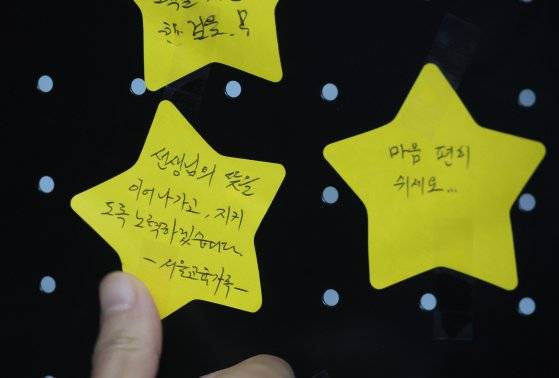 한 걸음, 목
선생님의 뜻을
이어나가고, 지키
도록 노력하겠습니다.
- 서울교육가족 -
마음 편히
쉬세요...